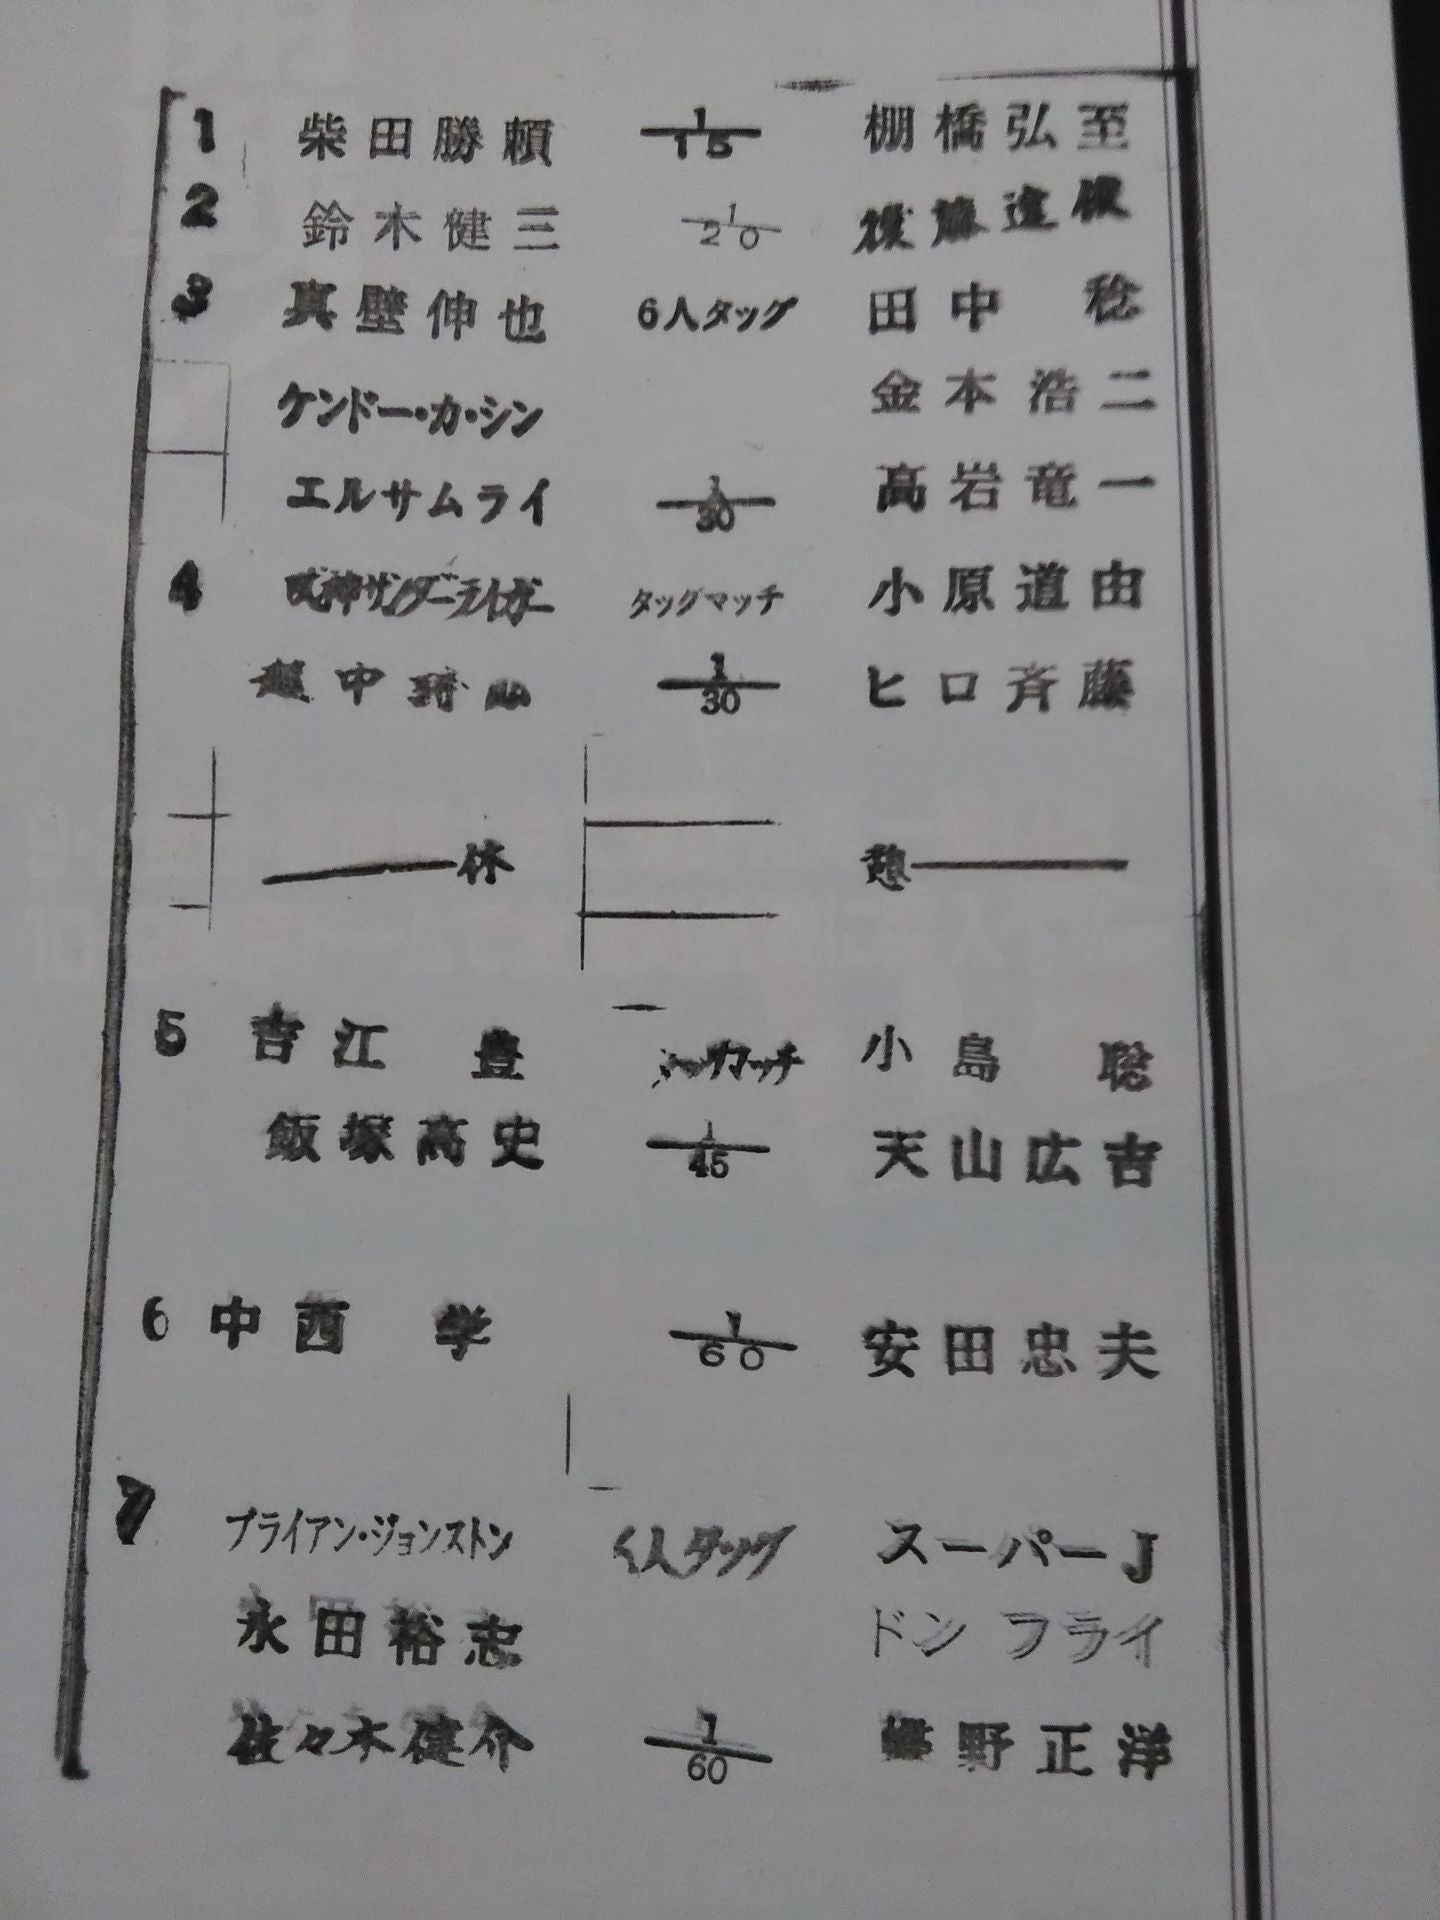 1 柴田勝頼 1/15 棚橋弘至
2 鈴木健三 1/20 後藤達俊
3 真壁伸也 6人タッグ 田中 稔
ケンドー・カ・シン 金本浩二
エルサムライ 1/30 高岩竜一
4 獣神サンダーライガー タッグマッチ 小原道由
越中詩郎 1/30 ヒロ斉藤
休 憩
5 吉江 豊 タッグマッチ 小島 聡
飯塚高史 1/45 天山広吉
6 中西 学 1/60 安田忠夫
7 ブライアン・ジョンストン 人タッグ スーパーJ
永田裕志 ドン フライ
佐々木健介 1/60 蝶野正洋